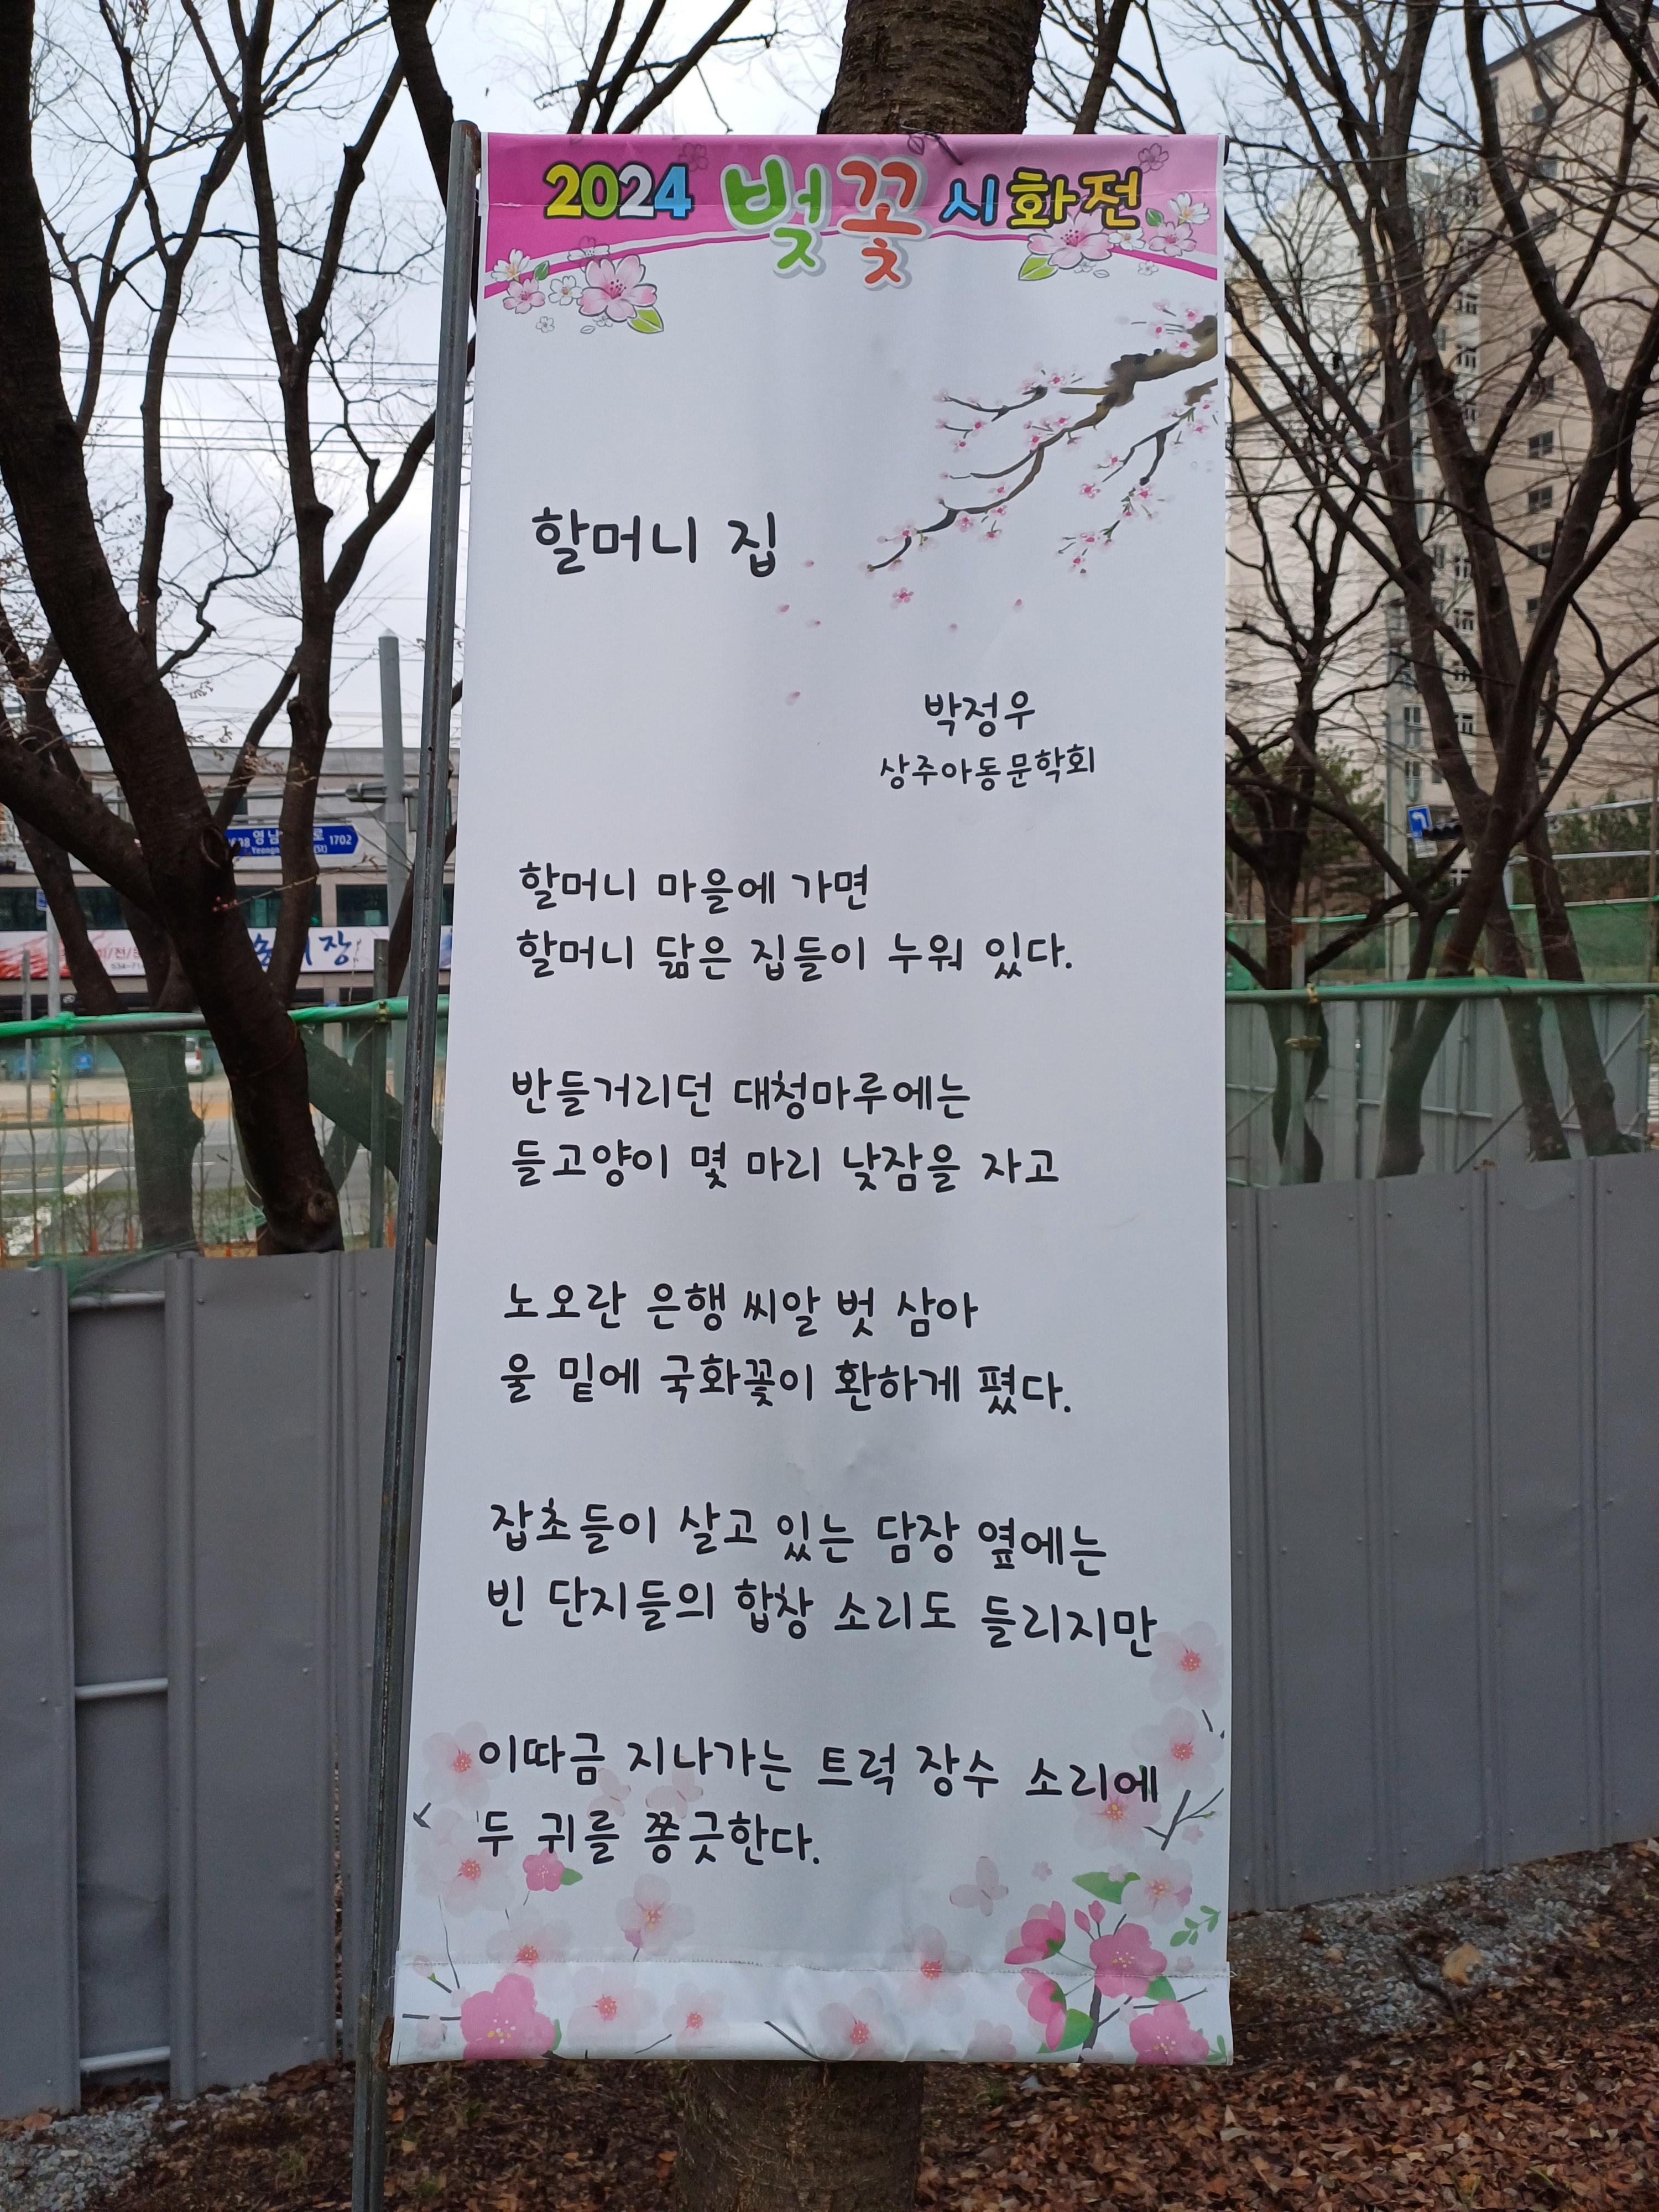 2024 벚꽃 시화전
할머니 집
박정우
상주아동문학회
할머니 마을에 가면
할머니 닮은 집들이 누워 있다.
반들거리던 대청마루에는
들고양이 몇 마리 낮잠을 자고
노오란 은행 씨알 벗 삼아
울 밑에 국화꽃이 환하게 폈다.
잡초들이 살고 있는 담장 옆에는
빈 단지들의 합창 소리도 들리지만
이따금 지나가는 트럭 장수 소리에
두 귀를 쫑긋한다.
1702